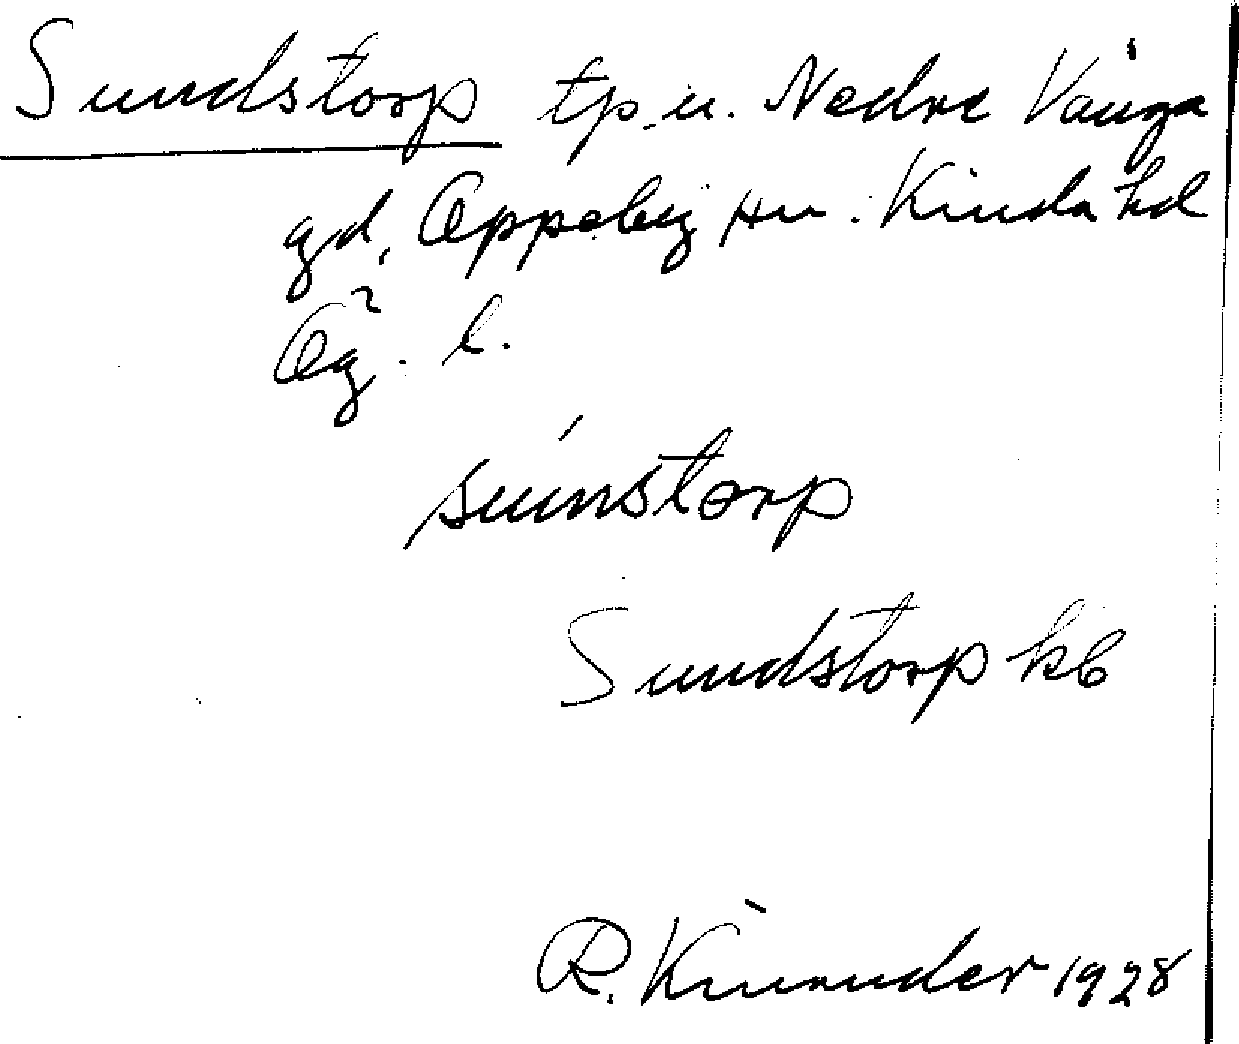 Sundstorp tp. u. Nedre Vånga
gd, Oppeby sn. Kinda hd
Ög. l.
súnstorp
Sundstorp kb
R. Kinnander 1928